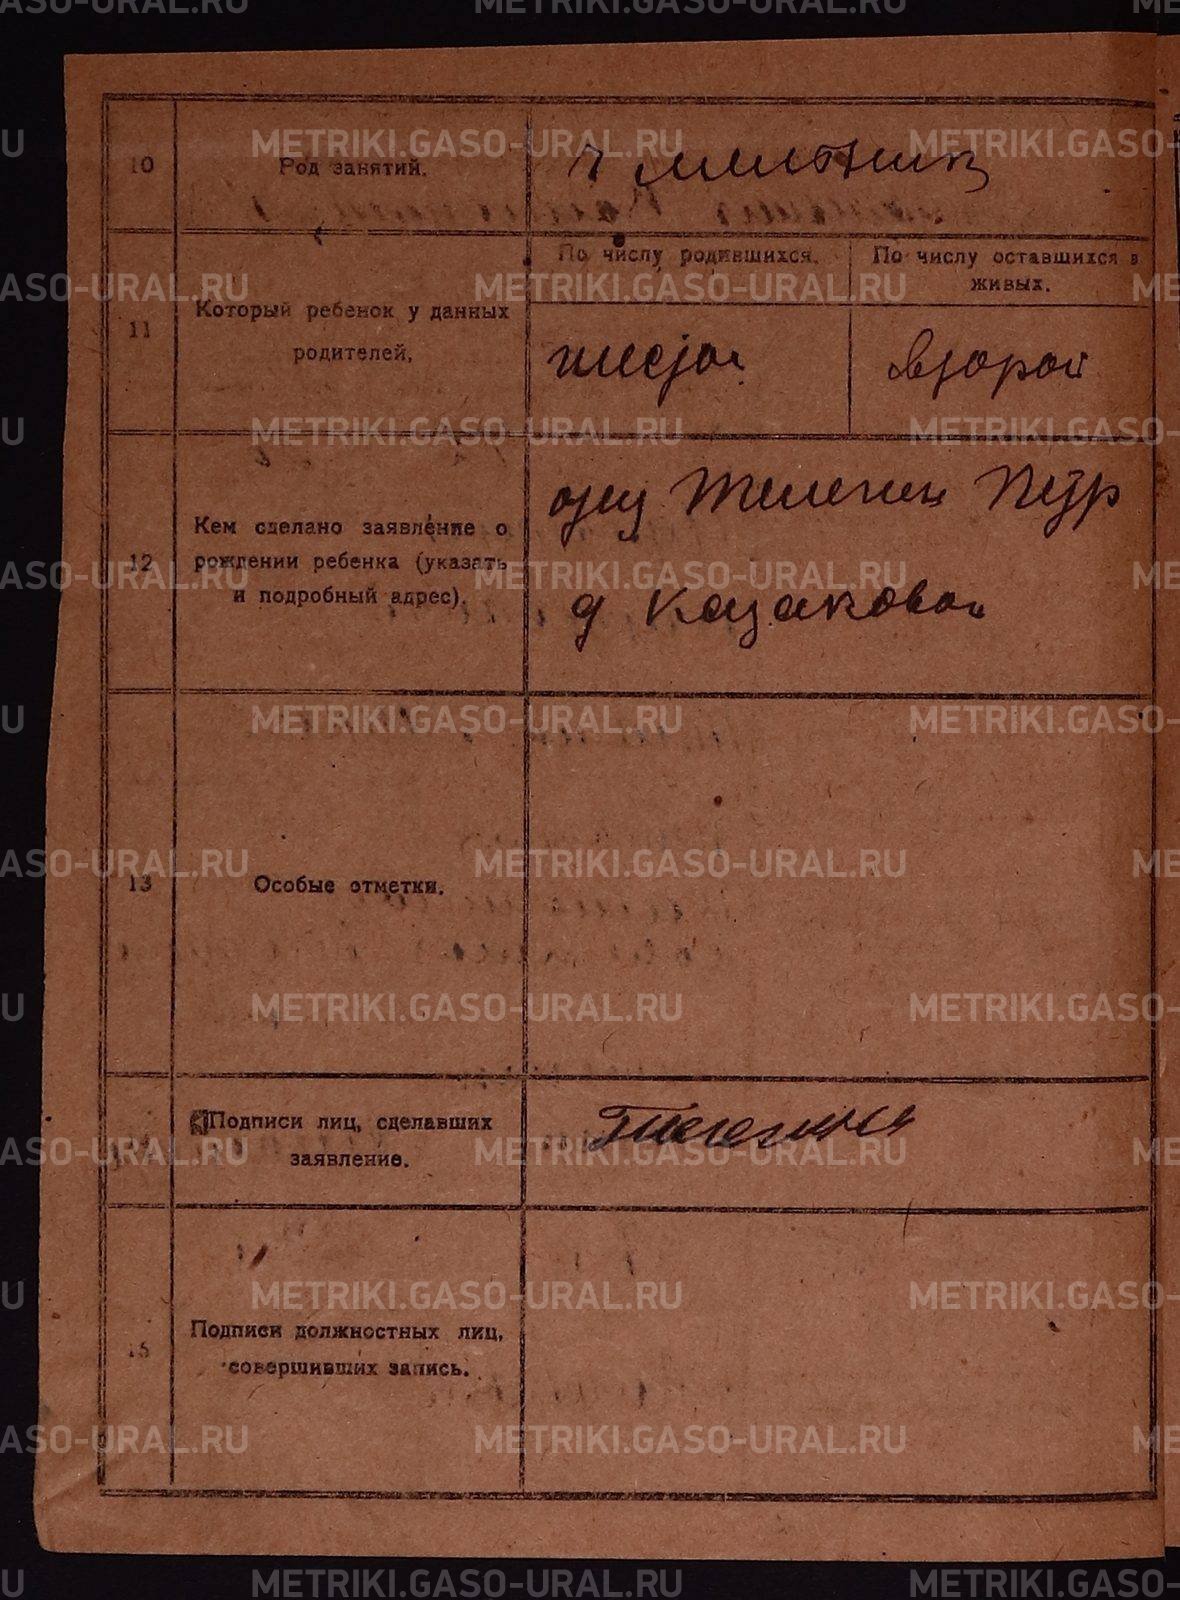 10
Род занятий.
По числу родившихся.
По числу оставшихся в
живых.
11
Который ребенок у данных
родителей.
шестой
второй
12
Кем сделано заявление о
рождении ребенка (указать
и подробный адрес).
отец Телегин Петр
д Казаковой
13
Особые отметки.
Подписи лиц, сделавших
заявление.
Телегин
15
Подписи должностных лиц,
совершивших запись.
METRIKI.GASO-URAL.RU